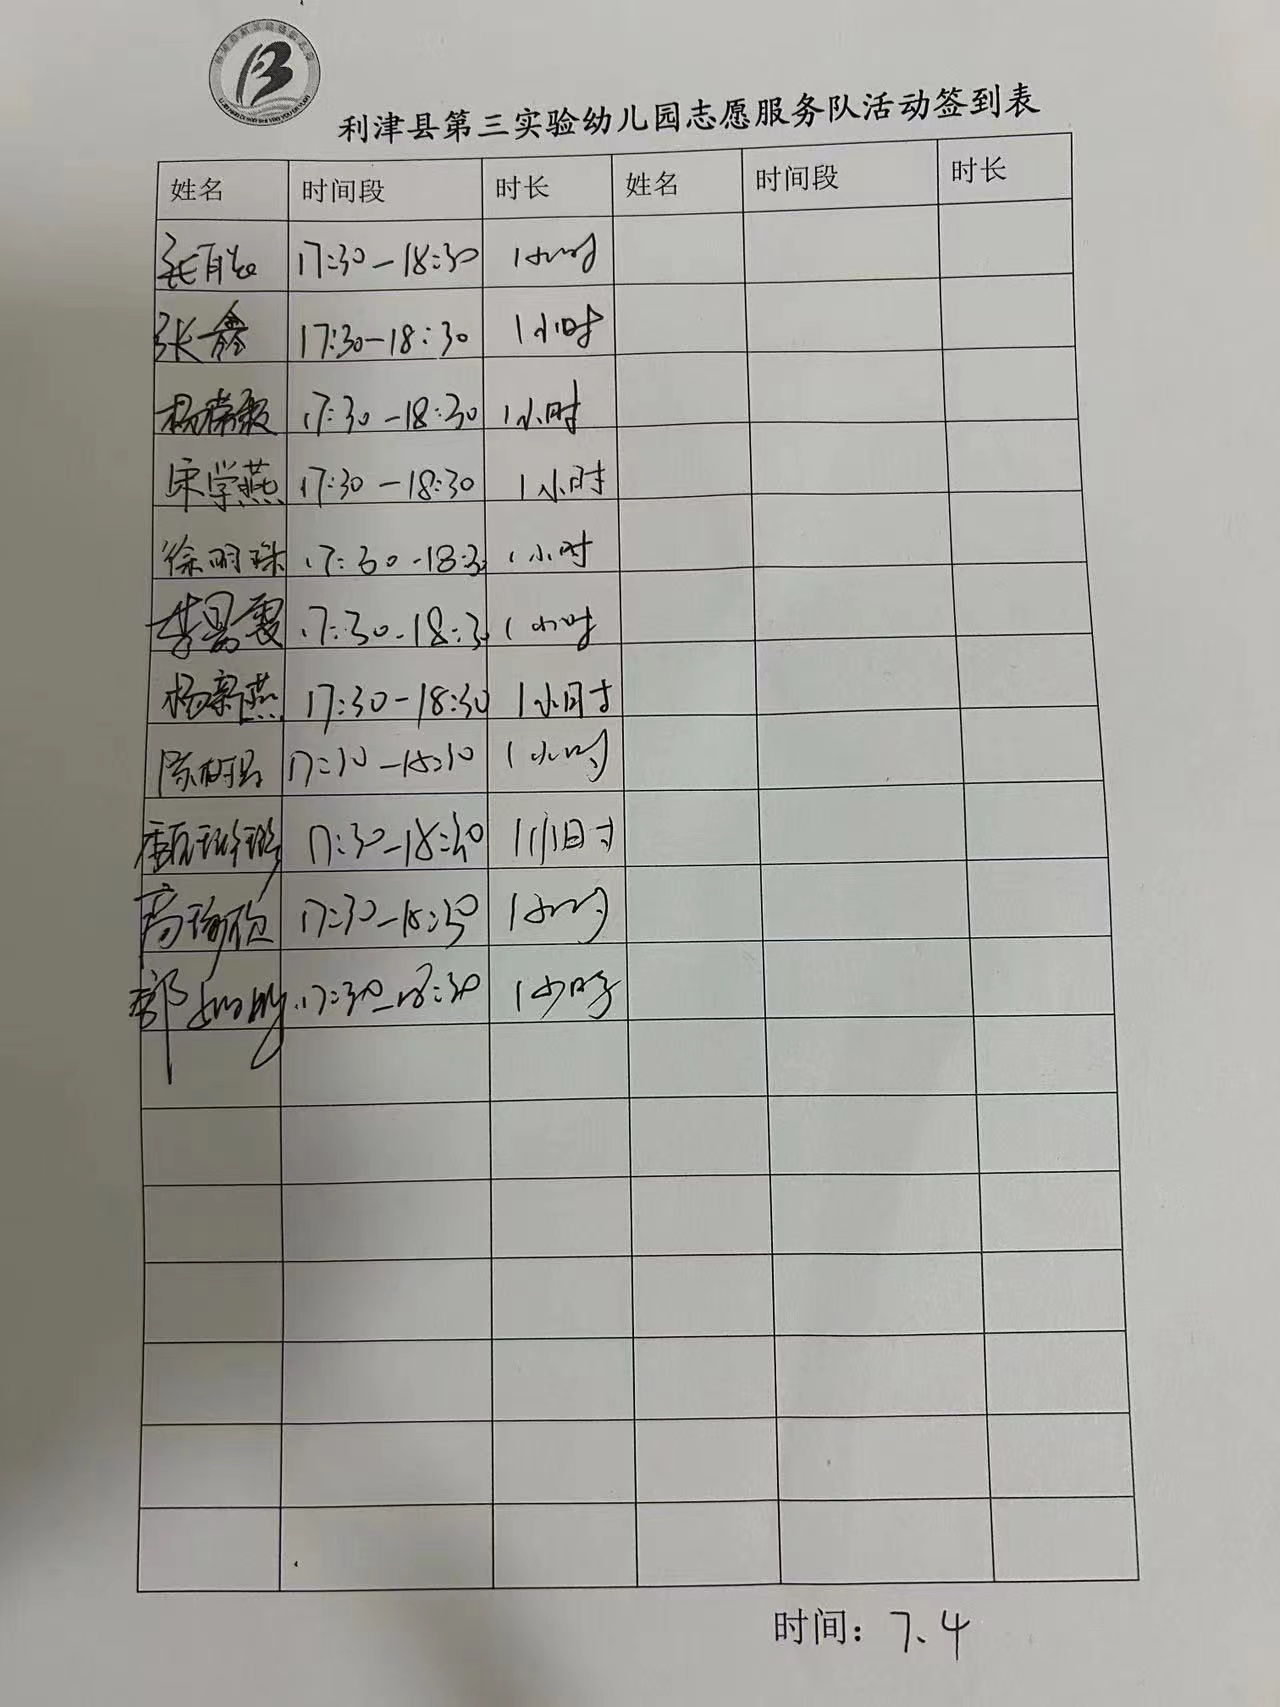 利津县第三实验幼儿园志愿服务队活动签到表
姓名 时间段 时长 姓名 时间段 时长
17:30-18:30 1小时
张鑫 17:30-18:30 1小时
17:30-18:30 1小时
宋学燕 17:30-18:30 1小时
徐明珠 17:30-18:3 1小时
李昌霞 17:30-18:3 1小时
杨新燕 17:30-18:30 1小时
陈树县 17:30-18:30 1小时
17:30-18:30 1小时
17:30-18:30 1小时
17:30-18:30 1小时
时间：7.4